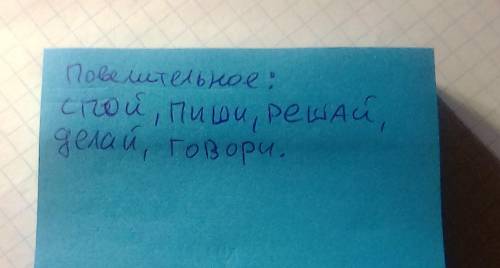 Повелительное:
спой, пиши, решай,
делай, говори.